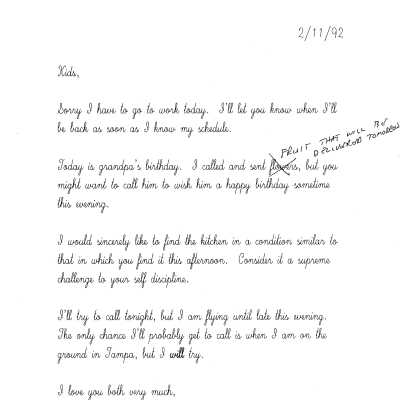 2/11/92
Kids,
Sorry I have to go to work today. I'll let you know when I'll
be back as soon as I know my schedule.
FRUIT THAT WILL BE
DELIVERED TOMORROW
Today is grandpa's birthday. I called and sent flowers, but you
might want to call him to wish him a happy birthday sometime
this evening.
I would sincerely like to find the kitchen in a condition similar to
that in which you find it this afternoon. Consider it a supreme
challenge to your self discipline.
I'll try to call tonight, but I am flying until late this evening.
The only chance I'll probably get to call is when I am on the
ground in Tampa, but I will try.
I love you both very much,